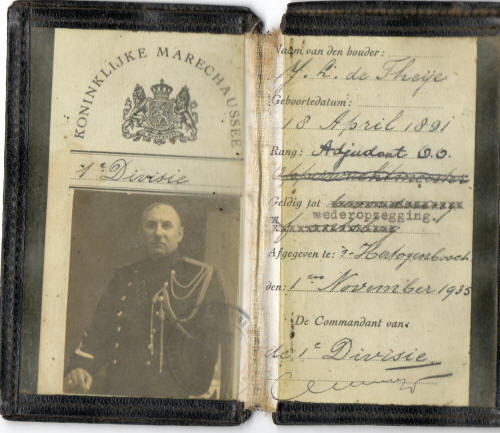 KONINKLIJKE MARECHAUSSEE
1e Divisie
Naam van den houder:
de Theije
Geboortedatum:
18 April 1891
Rang: Adjudant O.O.
opperwachtmeester
Geldig tot
wederopzegging.
Afgegeven te: 's-Hertogenbosch
den: 1en November 1935
De Commandant van
de 1e Divisie